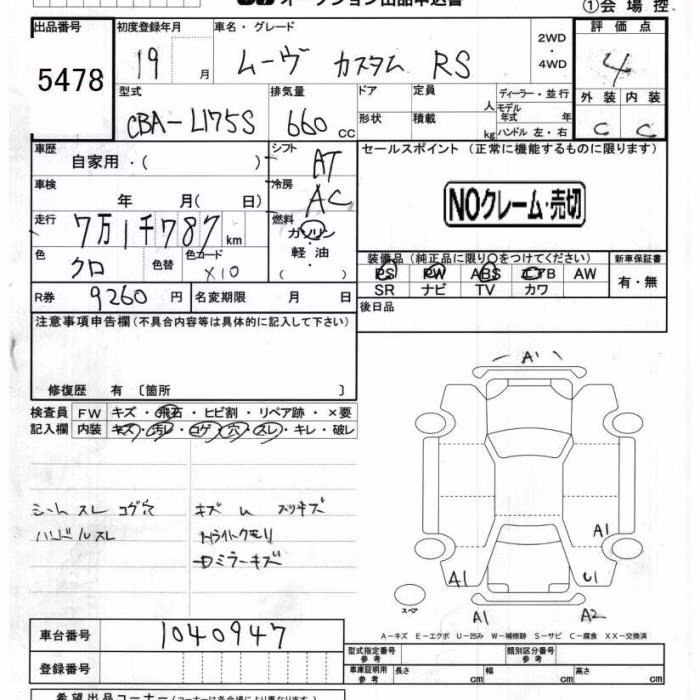 オークション出品申込書
①会場控
出品番号 初度登録年月 車名・グレード 2WD・4WD 評価点
5478 19 月 ムーヴ カスタム RS 4
型式 排気量 ドア 定員 人 ディーラー・並行 外装 内装
CBA-L175S 660 CC 形状 積載 kg モデル年式 年 ハンドル 左・右 C C
車歴 自家用・( ) シフト AT セールスポイント (正常に機能するものに限ります)
車検 年 月( 日) 冷房 AC
NOクレーム・売切
走行 7万1千787 km 燃料 ガソリン 軽油 ( )
色 クロ 色替 色コード X10
装備品(純正品に限り○をつけてください) 新車保証書
PS PW ABS エアB AW 有・無
SR ナビ TV カワ
R券 9260 円 名変期限 月 日 後日品
注意事項申告欄(不具合内容等は具体的に記入して下さい)
修復歴 有 〔箇所 〕
検査員 FW キズ・飛石・ヒビ割・リペア跡・×要
記入欄 内装 キズ・汚レ・コゲ・穴・スレ・キレ・破レ
A1
シートスレ コゲ穴 キズ ム スリキズ
ハンドルスレ Hライトクモリ
ミラーキズ
A1
A1 U1
スペア
A1 A2
A-キズ E-エクボ U-凹み W-補修跡 S-サビ C-腐食 XX-交換済
車台番号 1040947
型式指定番号 参考 類別区分番号 参考
登録番号 車庫証明用 参考 長さ cm 幅 cm 高さ cm
希望出品コーナー